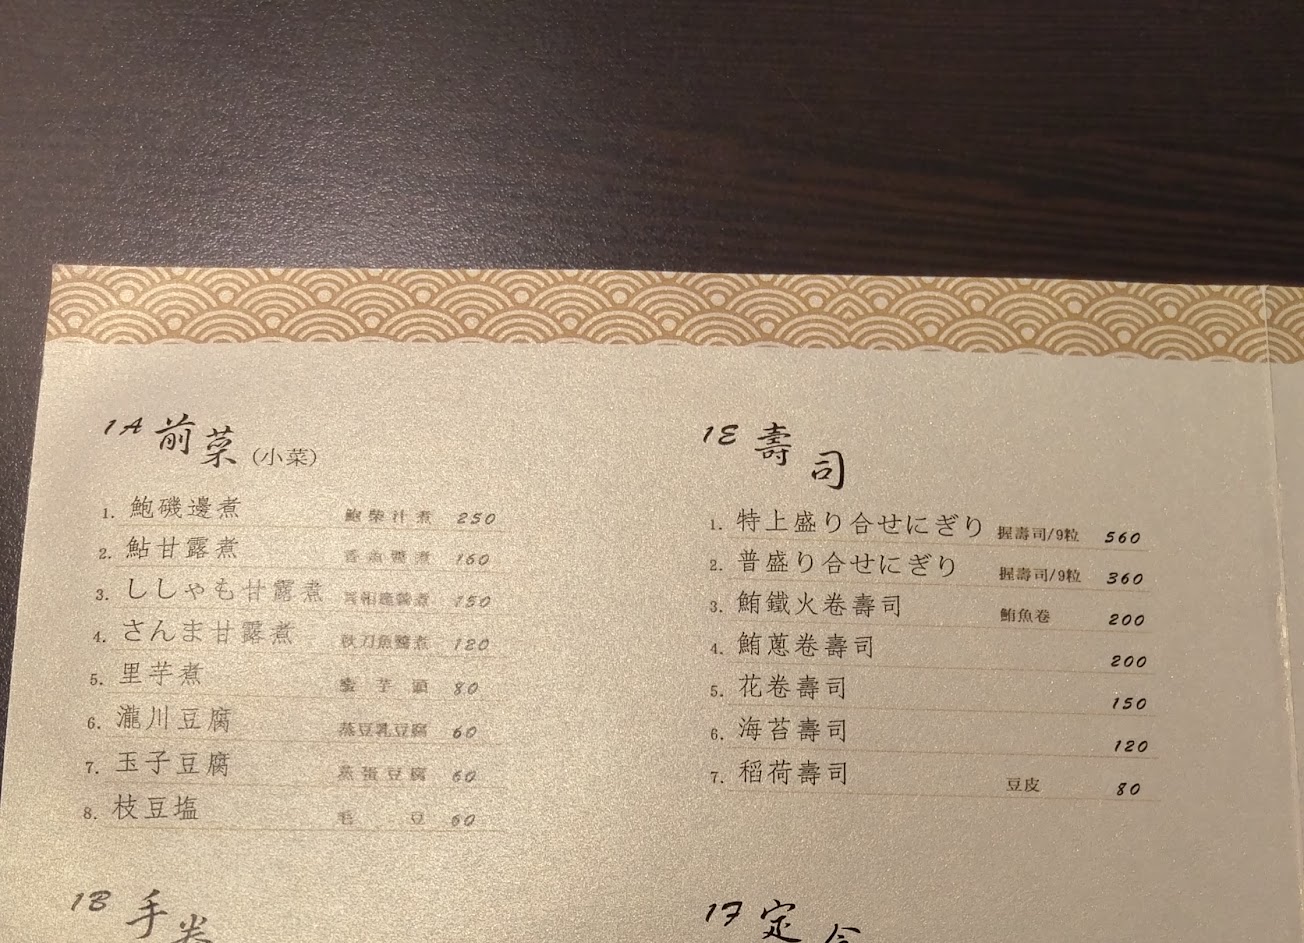 1A 前菜 (小菜)
1. 鮑磯邊煮 鮑柴汁煮 250
2. 鮎甘露煮 香魚醬煮 160
3. ししゃも甘露煮 醬煮 150
4. さんま甘露煮 秋刀魚醬煮 120
5. 里芋煮 蜜芋頭 80
6. 瀧川豆腐 蒸豆乳豆腐 60
7. 玉子豆腐 蒸蛋豆腐 60
8. 枝豆塩 毛豆 60
1B 手
1E 壽司
1. 特上盛り合せにぎり 握壽司/9粒 560
2. 普盛り合せにぎり 握壽司/9粒 360
3. 鮪鐵火卷壽司 鮪魚卷 200
4. 鮪蔥卷壽司 200
5. 花卷壽司 150
6. 海苔壽司 120
7. 稻荷壽司 豆皮 80
1F 定食